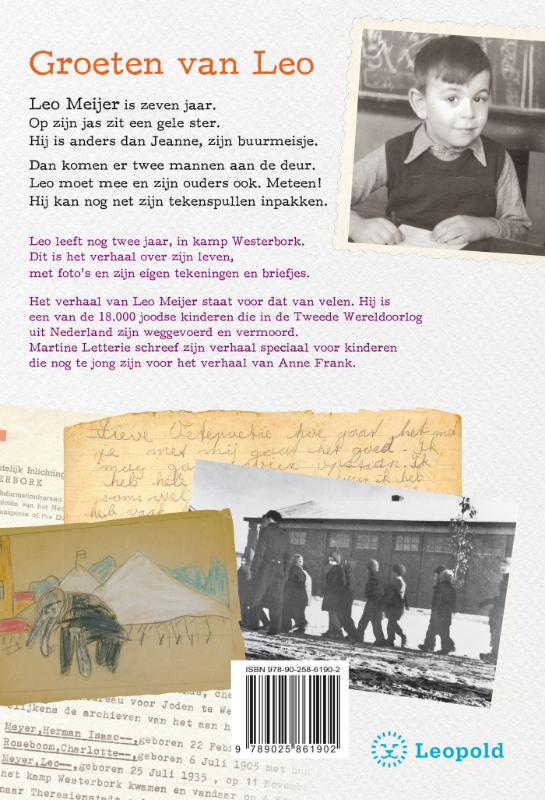 Groeten van Leo
Leo Meijer is zeven jaar.
Op zijn jas zit een gele ster.
Hij is anders dan Jeanne, zijn buurmeisje.
Dan komen er twee mannen aan de deur.
Leo moet mee en zijn ouders ook. Meteen!
Hij kan nog net zijn tekenspullen inpakken.
Leo leeft nog twee jaar, in kamp Westerbork.
Dit is het verhaal over zijn leven,
met foto's en zijn eigen tekeningen en briefjes.
Het verhaal van Leo Meijer staat voor dat van velen. Hij is
een van de 18.000 joodse kinderen die in de Tweede Wereldoorlog
uit Nederland zijn weggevoerd en vermoord.
Martine Letterie schreef zijn verhaal speciaal voor kinderen
die nog te jong zijn voor het verhaal van Anne Frank.
Lieve hoe gaat het met
je met mij gaat het goed. Ik
ik heb
heb
telijk Inlichting
ERBORK
Informationbureau
van het Ned
auspices of the Du
ISBN 978-90-258-6190-2
9 789025 861902
bureau voor Joden te We
elijkens de archieven van het aan h
Meyer, Herman Isaac--, geboren 22 Feb
Roseboom, Charlotte--, geboren 6 Juli 1905 met hun
Meyer, Leo--, geboren 25 Juli 1935 , op 11 Novemb
het kamp Westerbork kwamen en vandaar op 4
naar Theresienstadt
Leopold